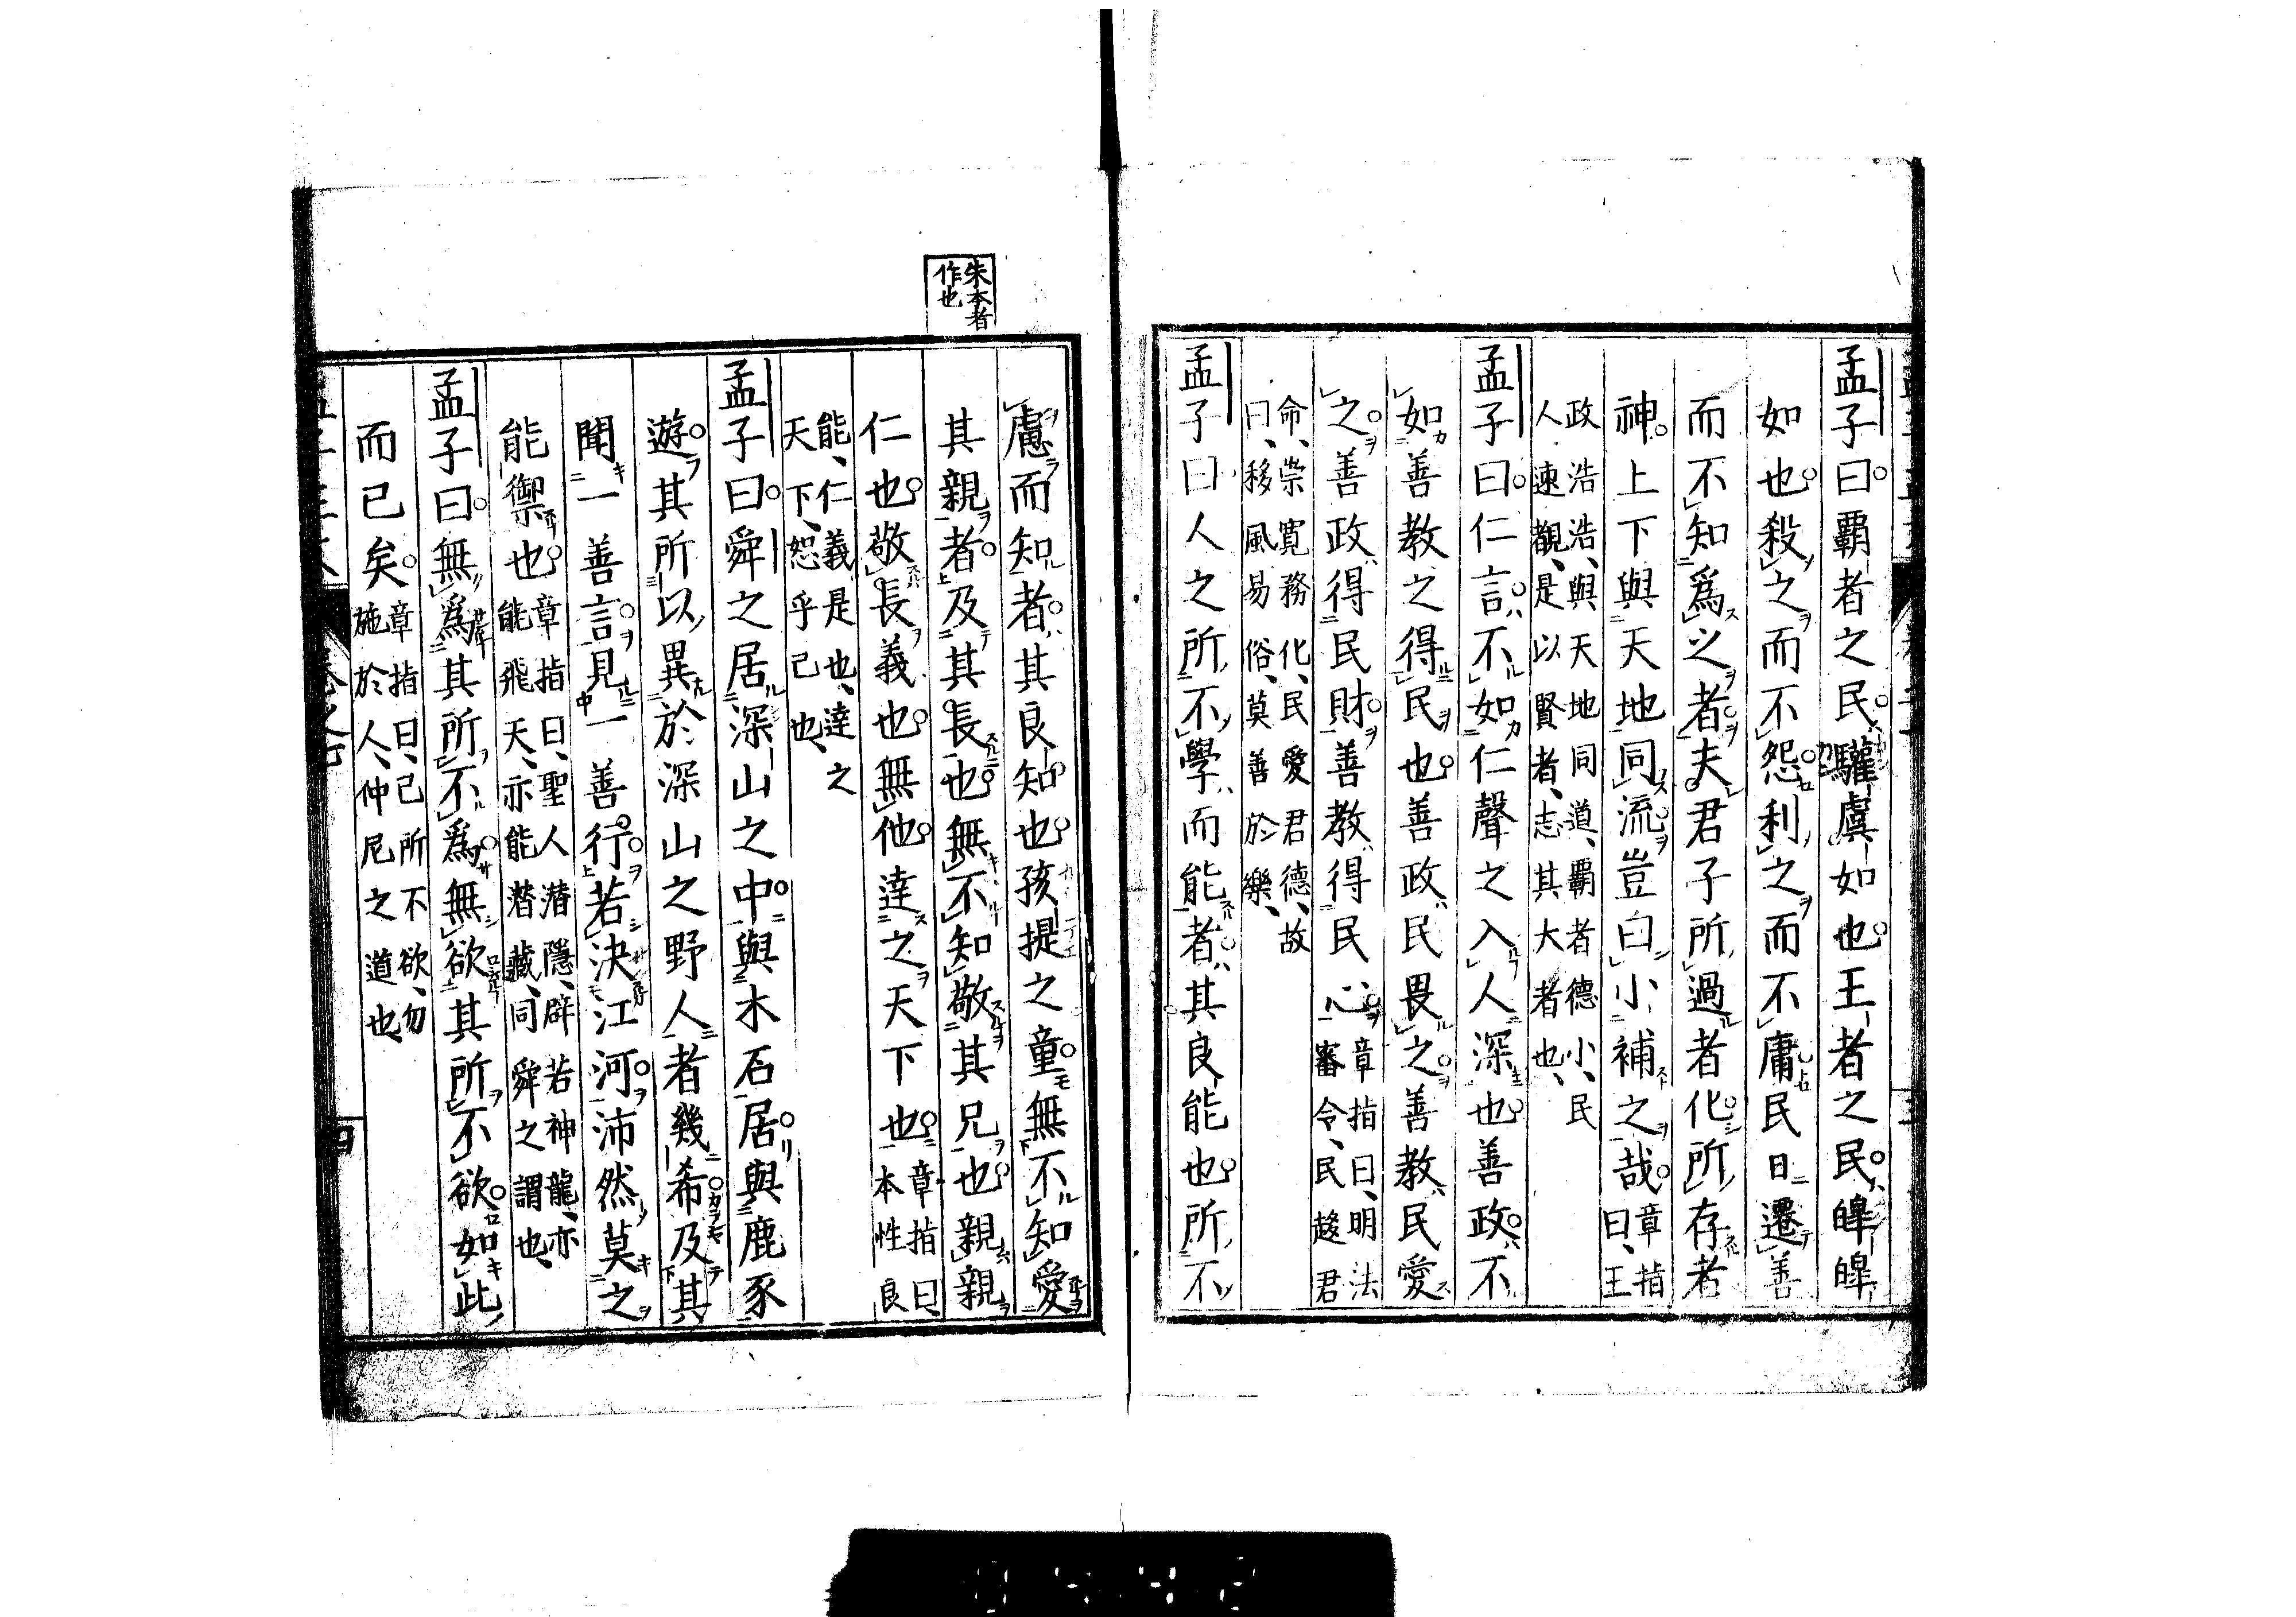 孟子曰覇者之民驩虞如也王者之民皥皥
如也殺之而不怨利之而不庸民日遷善
而不知爲之者夫君子所過者化所存者
神上下與天地同流豈曰小補之哉章指曰、王
政浩浩、與天地同道、覇者德小、民
人速觀、是以賢者、志其大者也、
孟子曰仁言不如仁聲之入人深也善政不
如善教之得民也善政民畏之善教民愛
之善政得民財善教得民心章指曰、明法
審令、民趍君
命、崇寬務化、民愛君德、故
曰、移風易俗、莫善於樂、
孟子曰人之所不學而能者其良能也所不
慮而知者其良知也孩提之童無不知愛
其親者及其長也無不知敬其兄也親親
仁也敬長義也無他達之天下也章指曰、
本性良
能、仁義是也、達之
天下、恕乎己也、
孟子曰舜之居深山之中與木石居與鹿豕
遊其所以異於深山之野人者幾希及其
聞一善言見一善行若決江河沛然莫之
能禦也章指曰、聖人潛隱、辟若神龍、亦
能飛天、亦能潛藏、同舜之謂也、
孟子曰無爲其所不爲無欲其所不欲如此
而已矣章指曰、己所不欲、勿
施於人、仲尼之道也、
朱本者
作也